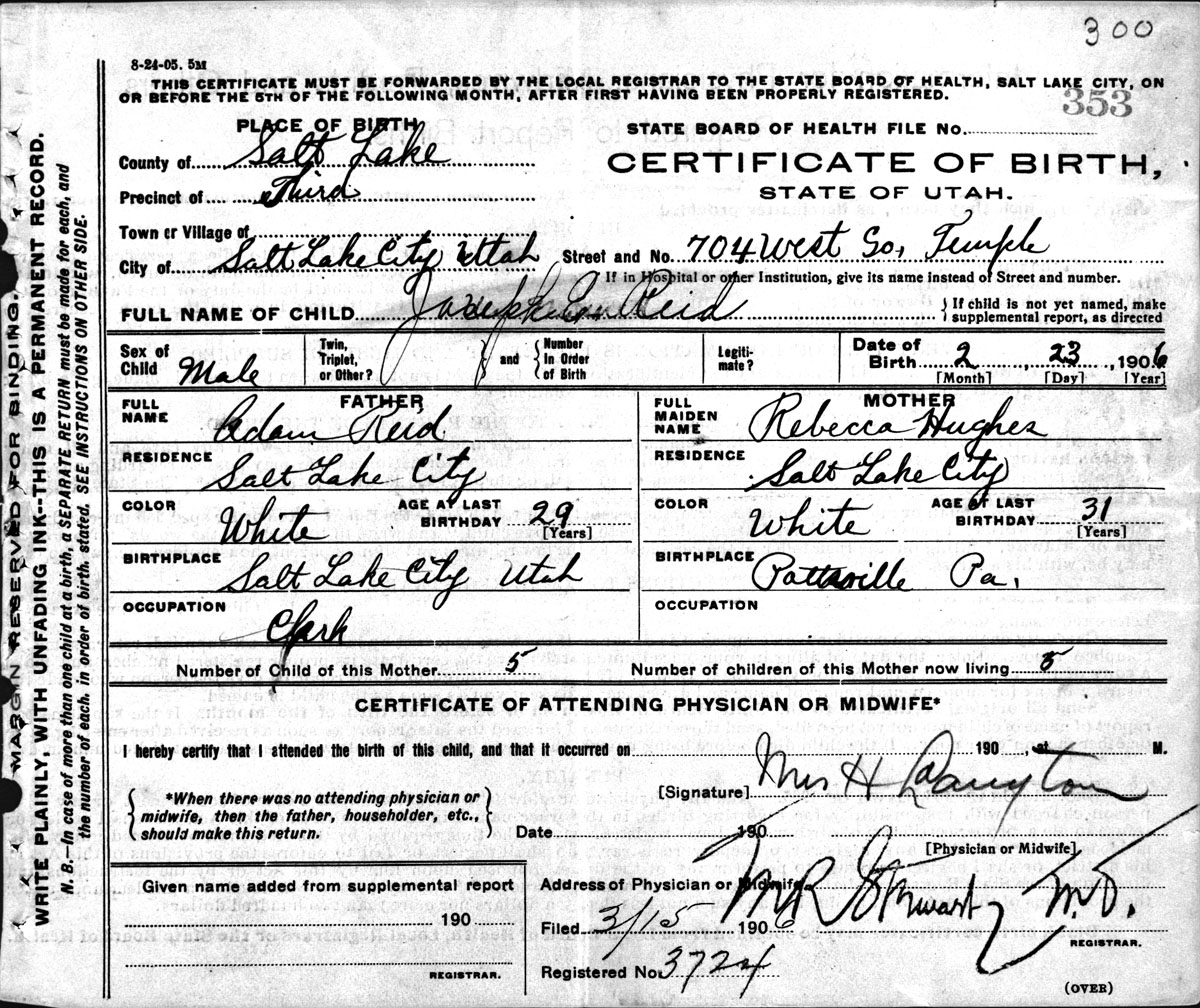 300
8-24-05. 5M
THIS CERTIFICATE MUST BE FORWARDED BY THE LOCAL REGISTRAR TO THE STATE BOARD OF HEALTH, SALT LAKE CITY, ON
OR BEFORE THE 5TH OF THE FOLLOWING MONTH, AFTER FIRST HAVING BEEN PROPERLY REGISTERED.
353
PLACE OF BIRTH
STATE BOARD OF HEALTH FILE No.
County of Salt Lake
CERTIFICATE OF BIRTH,
Precinct of Third
STATE OF UTAH.
Town or Village of
City of Salt Lake City Utah Street and No. 704 West So, Temple
If in Hospital or other Institution, give its name instead of Street and number.
FULL NAME OF CHILD Joseph Reid
{ If child is not yet named, make
supplemental report, as directed
Sex of Child Male
Twin, Triplet, or Other? } and { Number In Order of Birth
Legiti-mate?
Date of Birth 2 23, 1906
[Month] [Day] [Year]
FATHER
FULL NAME Adam Reid
RESIDENCE Salt Lake City
COLOR White AGE AT LAST BIRTHDAY 29 [Years]
BIRTHPLACE Salt Lake City Utah
OCCUPATION Clark
MOTHER
FULL MAIDEN NAME Rebecca Hughes
RESIDENCE Salt Lake City
COLOR White AGE AT LAST BIRTHDAY 31 [Years]
BIRTHPLACE Pottsville Pa.
OCCUPATION
Number of Child of this Mother 5 Number of children of this Mother now living 5
CERTIFICATE OF ATTENDING PHYSICIAN OR MIDWIFE*
I hereby certify that I attended the birth of this child, and that it occurred on 190 , at M.
{ *When there was no attending physician or
midwife, then the father, householder, etc.,
should make this return. }
[Signature] Mrs H
Date 190
[Physician or Midwife]
Given name added from supplemental report
190
REGISTRAR.
Address of Physician or Midwife
Filed 3/15 1906
M.D.
REGISTRAR.
Registered No. 3724
(OVER)
MARGIN RESERVED FOR BINDING.
WRITE PLAINLY, WITH UNFADING INK--THIS IS A PERMANENT RECORD.
N. B.—In case of more than one child at a birth, a SEPARATE RETURN must be made for each, and
the number of each, in order of birth, stated. SEE INSTRUCTIONS ON OTHER SIDE.